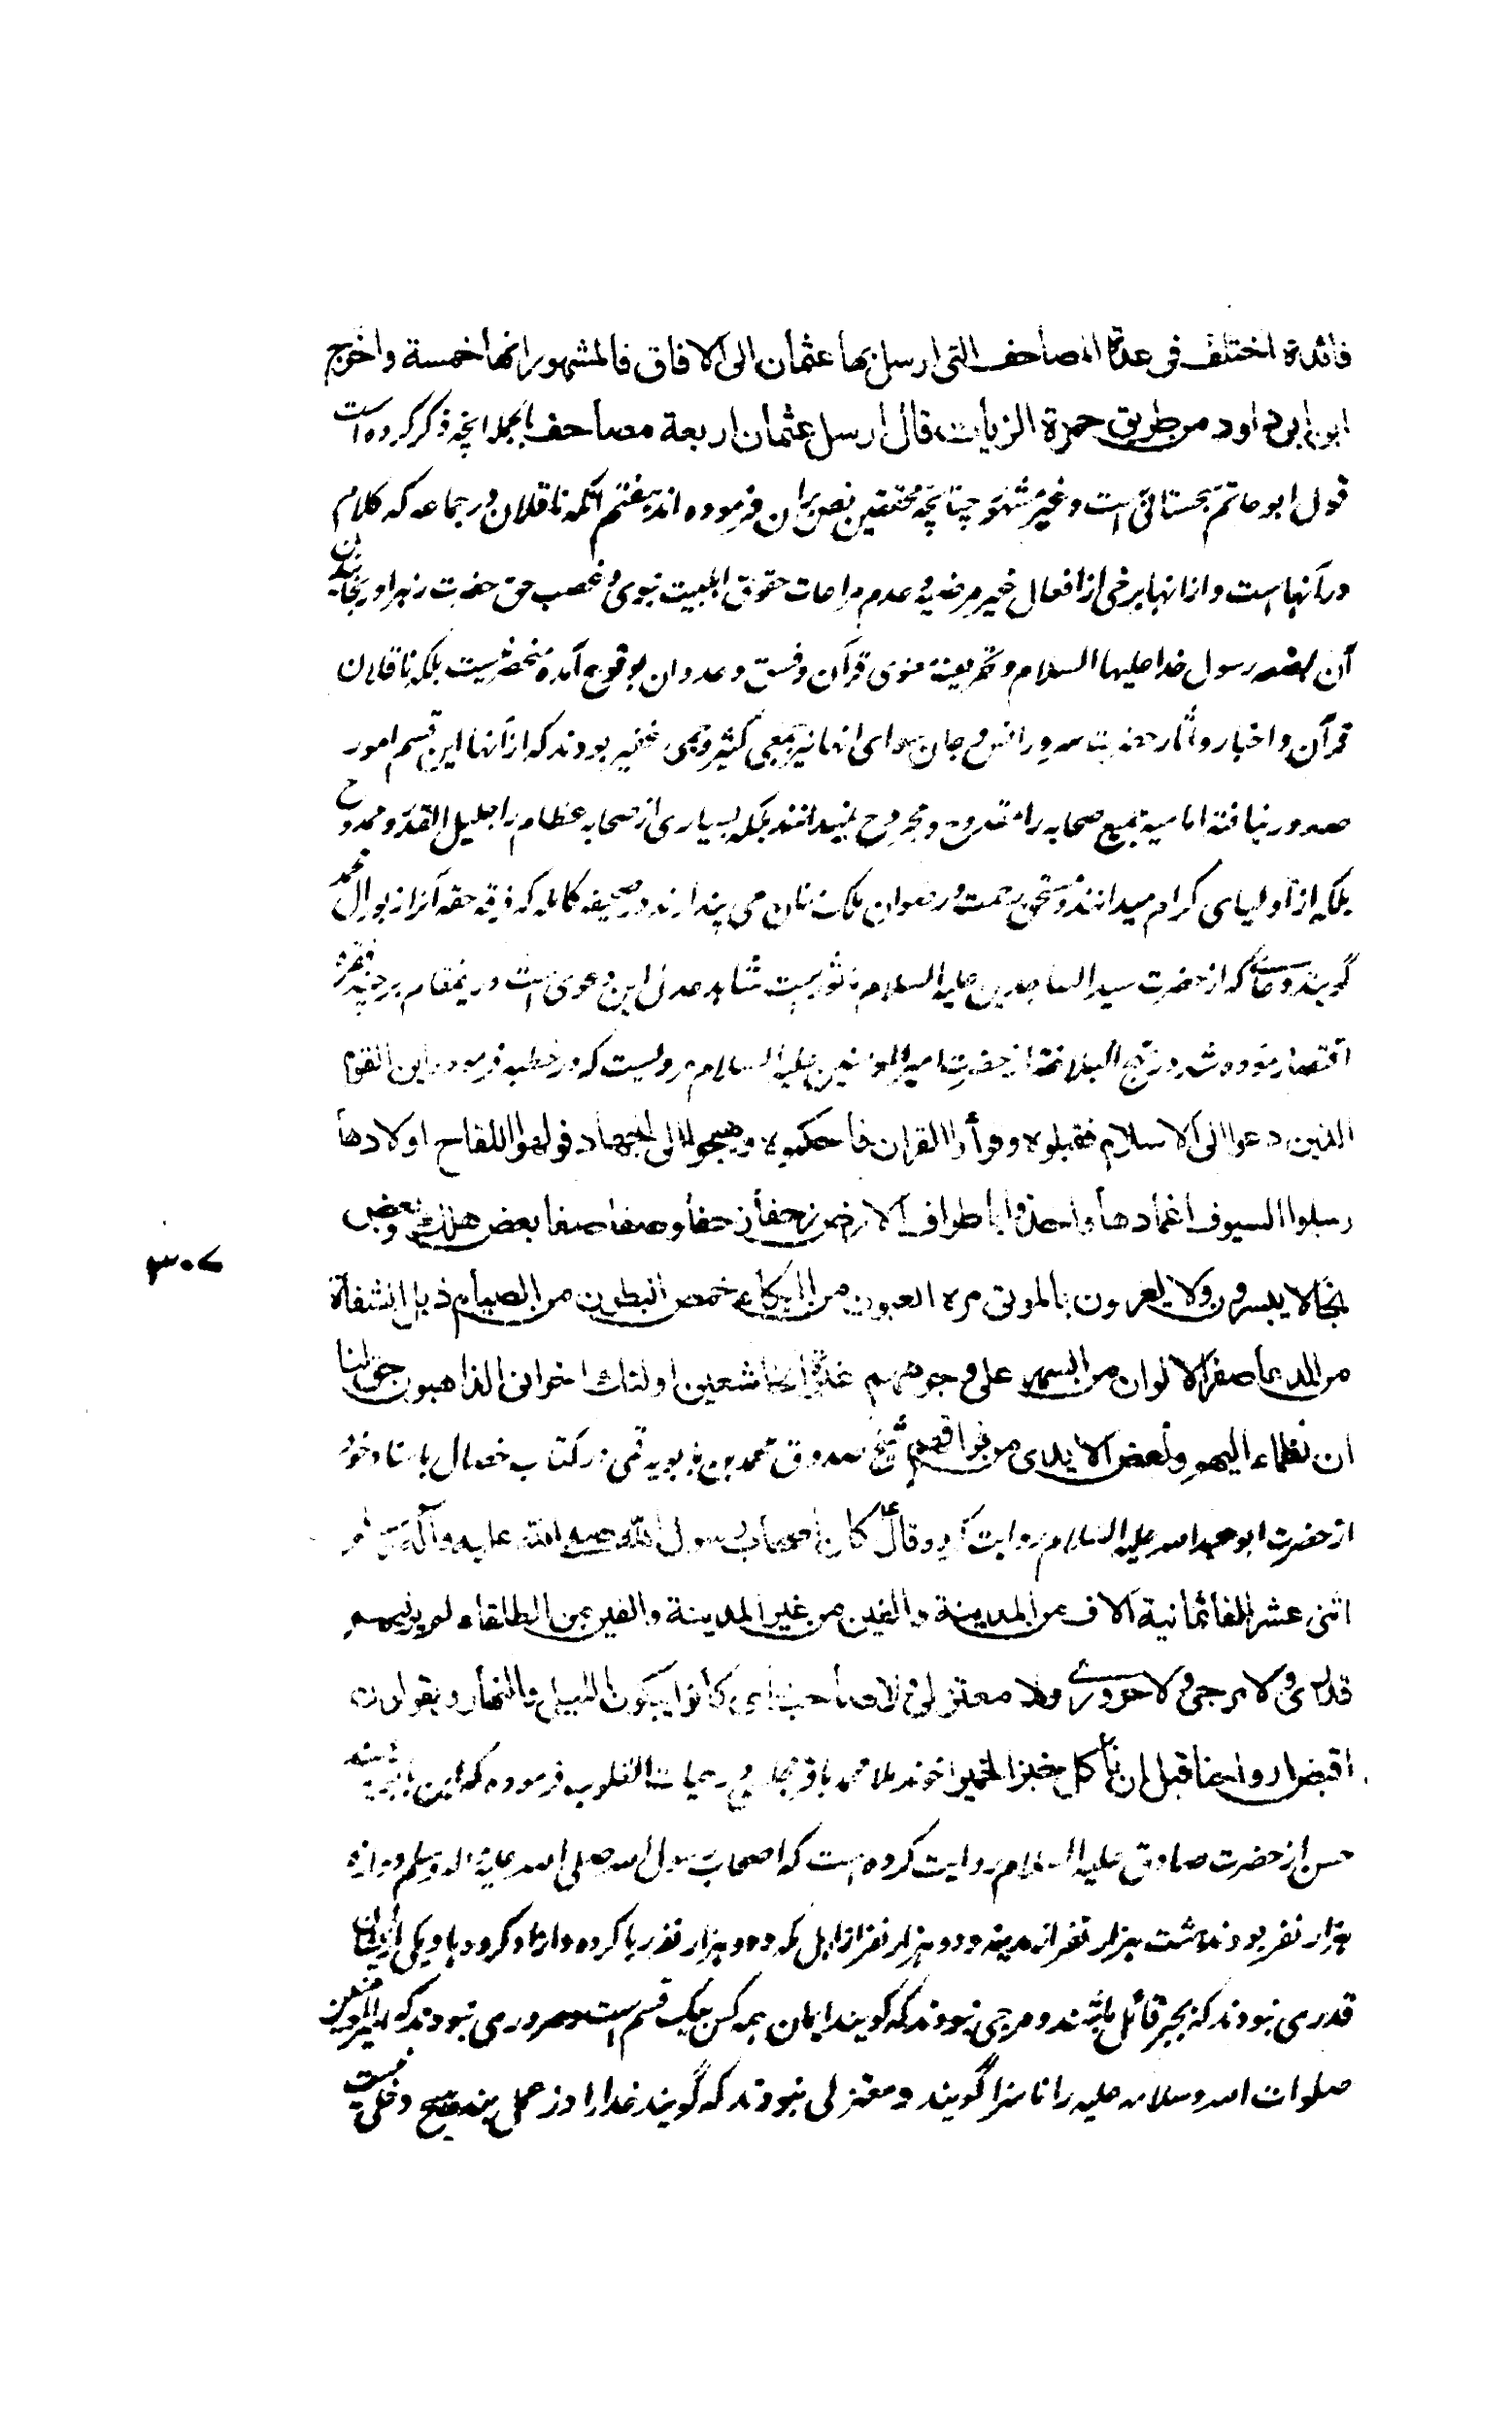 فائدة اختلف فی عدة المصاحف التی ارسل بها عثمان الی الافاق فالمشهور انها خمسة واخرج
ابن ابی داود من طریق حمزة الزیات قال ارسل عثمان اربعة مصاحف بالجمله انچه ذکر کرده است
قول ابو حاتم سجستانی است و غیر مشهور چنانچه محققین بران فرموده اند هفتم آنکه ناقلان در جماعه که کلام
در آنها است و از انها برخی از افعال غیر مرضیه و عدم مراعات حقوق اهلبیت نبوی و غصب حق حضرت زهرا و
آن بضعه رسول خدا علیها السلام و تحریف معنوی قرآن و فسق و عدوان بوقوع آمده منحصر نیست بلکه ناقلان
قرآن و اخبار و آثار حضرت سرور انس و جان سوای انها نیز جمعی کثیر و جمی غفیر بودند که از آنها این قسم امور
صدور نیافته امامیه جمیع صحابه را مقدوح و مجروح نمیدانند بلکه بسیاری از صحابه عظام را جلیل القدر و ممدوح
بلکه از اولیای کرام میدانند و مستحق رحمت و رضوان ملک منان می پندارند در صحیفه کامله که فرقه حقه آنرا زبور آل محمد
گویند دعائے که از حضرت سید الساجدین علیه السلام ماثور است شاهد عدل این دعوی است درینمقام بر چند فقره
اقتصار نموده شد در نهج البلاغة از حضرت امیر المومنین علیه السلام مرویست که در خطبه فرموده این القوم
الذین دعوا الی الاسلام فقبلوه وقرأوا القران فاحکموه وهیجوا الی الجهاد فولهوا اللقاح اولادها
وسلبوا السیوف اغمادها واخذوا باطراف الارض زحفا زحفا وصفا صفا بعض هلک وبعض
نجا لا یبشرون ولا یعزون بالموتی مره العیون من البکاء خمص البطون من الصیام ذبل الشفاة
من الدعا صفر الالوان من السهر علی وجوههم غبرة الخاشعین اولئک اخوانی الذاهبون حق لنا
ان نظماء الیهم ونعض الایدی من فراقهم شیخ صدوق محمد بن بابویه قمی در کتاب خصال باسناد خود
از حضرت ابو عبد الله علیه السلام روایت کرده قال کان اصحاب رسول الله صلی الله علیه وآله وسلم
اثنی عشر الفا ثمانیة آلاف من المدینة والفین من غیر المدینة والفین من الطلقاء لم یر فیهم
قدری ولا مرجی ولا حروری ولا معتزلی ولا صاحب رای کانوا یبکون اللیل والنهار ویقولون
اقبض ارواحنا قبل ان نأکل خبز الخمیر اخوند ملا محمد باقر مجلسی در حیات القلوب فرموده که ابن بابویه بسند
حسن از حضرت صادق علیه السلام روایت کرده است که اصحاب رسول الله صلی الله علیه وآله وسلم دوازده
هزار نفر بودند هشت هزار نفر از مدینه و دو هزار نفر از اهل مکه و دو هزار نفر رها کرده و آزاد کرده‌ها و یکی از ایشان
قدری نبودند که بجبر قائل باشند و مرجی نبودند که گویند ایمان همه کس یک قسم است و حروری نبودند که امیر المومنین
صلوات الله وسلامه علیه را ناسزا گویند و معتزلی نبودند که گویند خدا را در عمل بنده هیچ دخلی نیست
۳۰۷